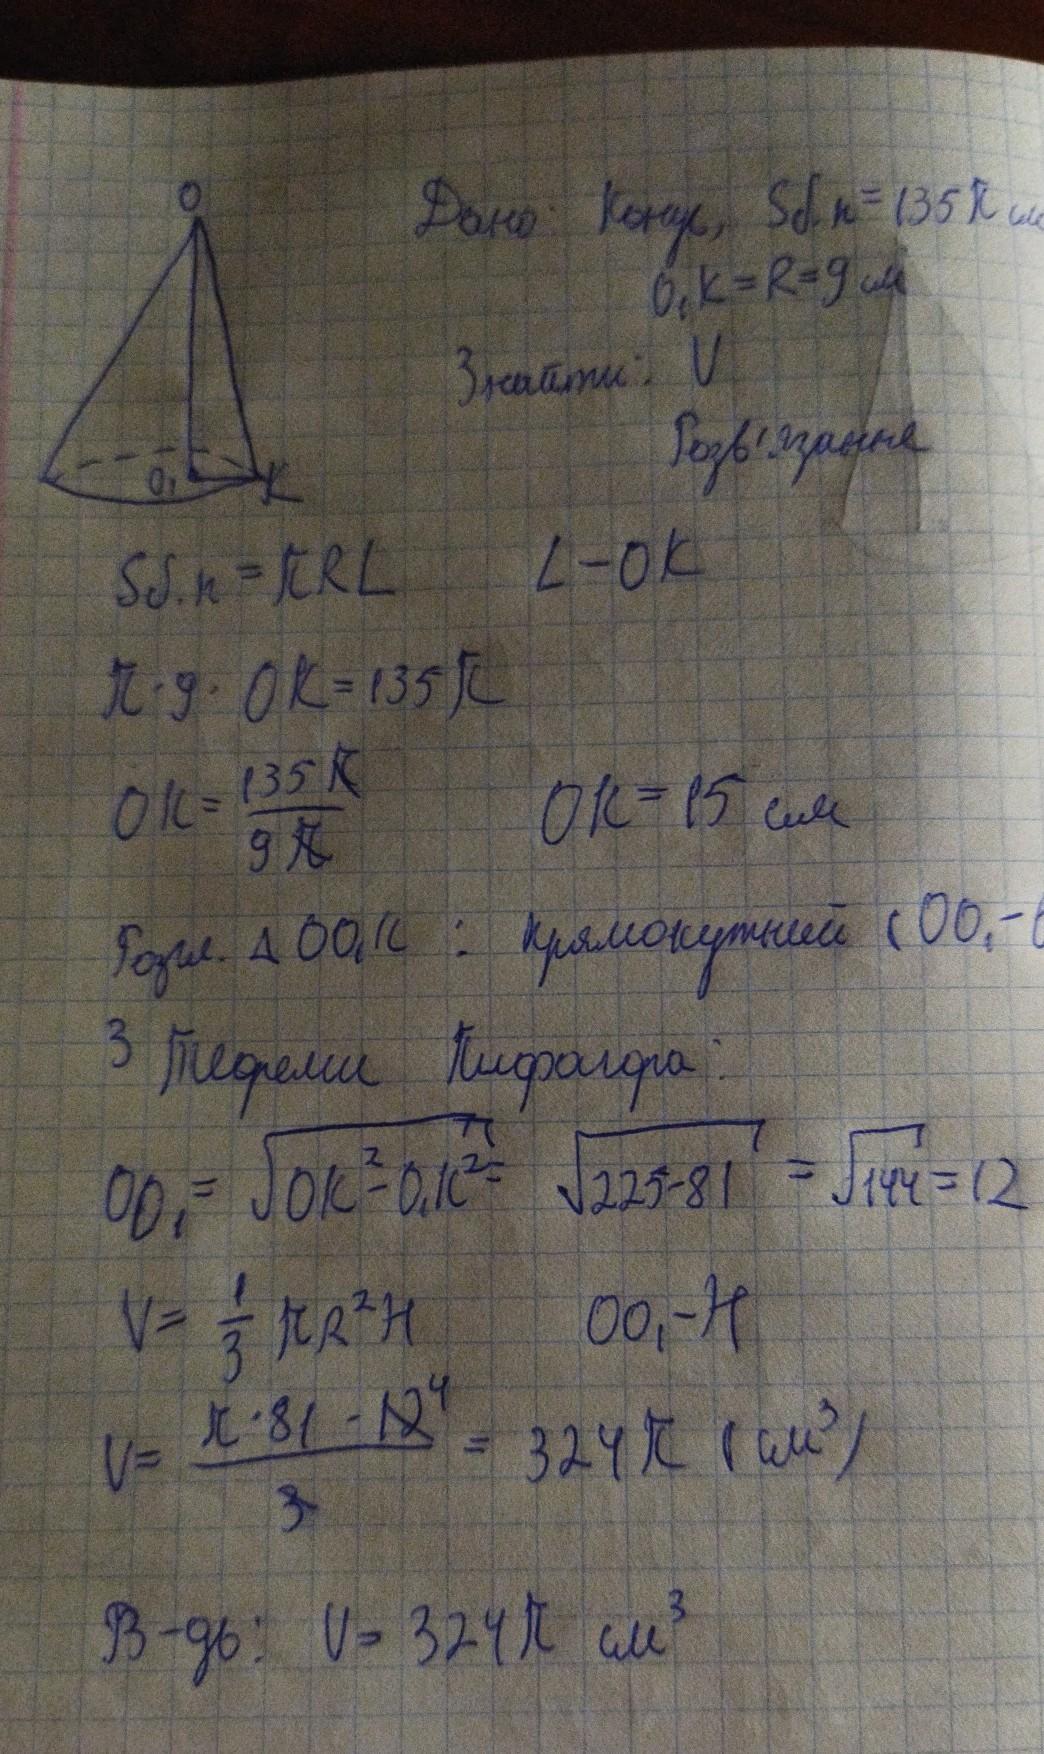 O
O₁ K
Дано: Конус, Sб.п = 135π см
O₁K = R = 9 см
Знайти: V
Розв'язання
Sб.п = πRL L - OK
π · 9 · OK = 135π
OK = 135π / 9π OK = 15 см
Розгл. △ OO₁K : прямокутний (OO₁ -
З Теореми Піфагора:
OO₁ = √OK² - O₁K² = √225-81 = √144 = 12
V = 1/3 πR²H OO₁ - H
V = π · 81 · 12 4 / 3 = 324π (см³)
В-дь: V = 324π см³